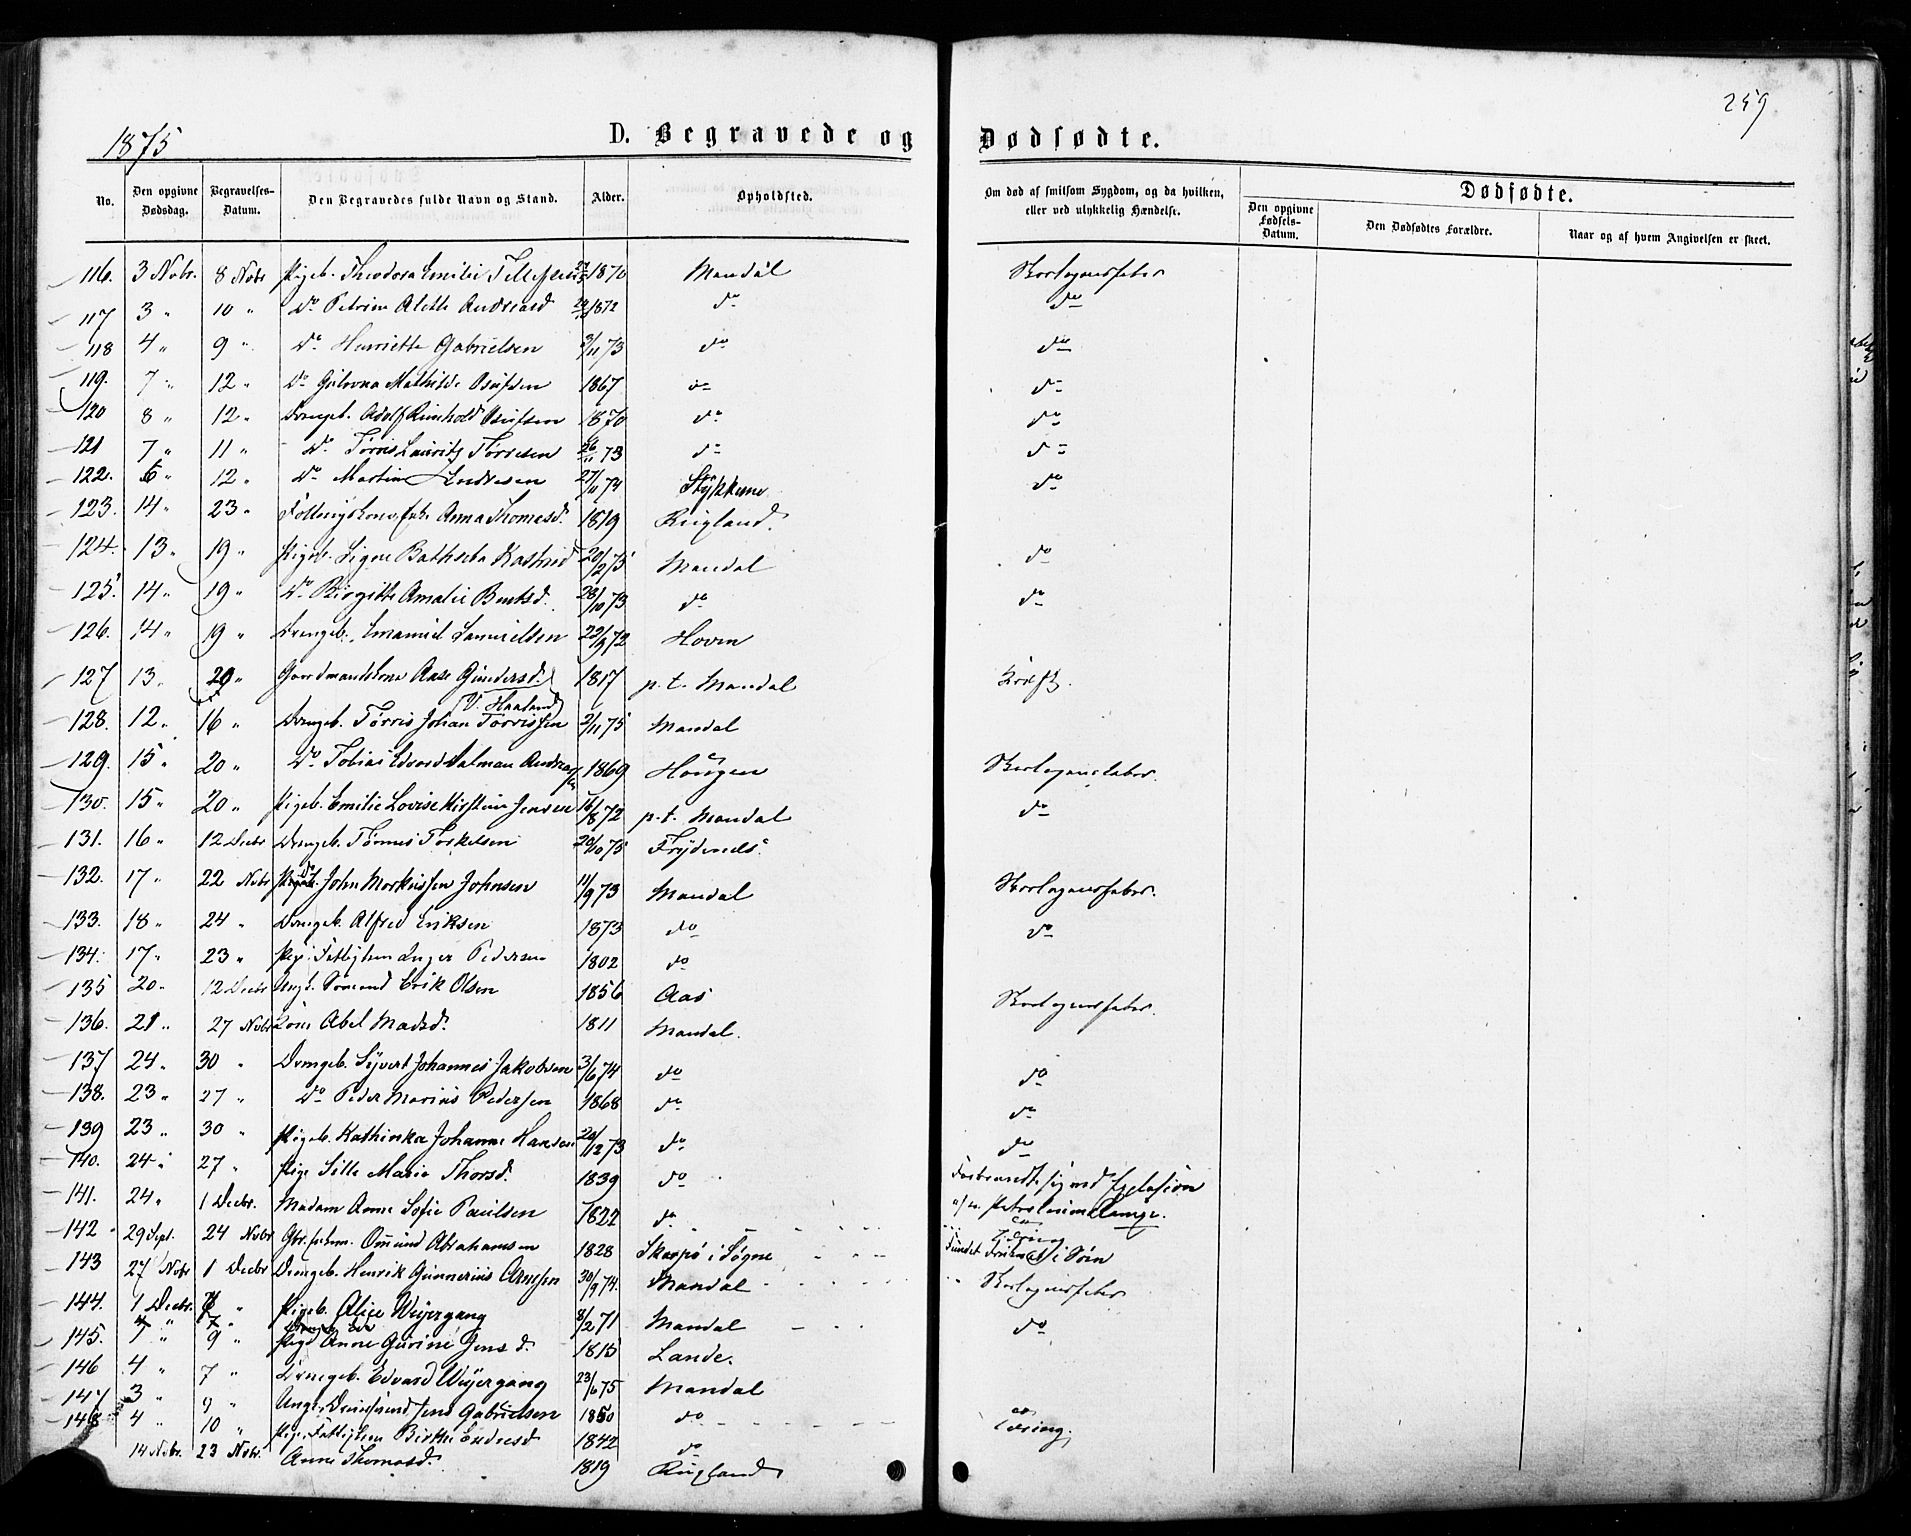 259
1875
D. Begravede og Dødfødte.
No.
Den opgivne Dødsdag.
Begravelses-Datum.
Den Begravedes fulde Navn og Stand.
Alder.
Opholdsted.
Om død af smitsom Sygdom, og da hvilken, eller ved ulykkelig Hændelse.
Dødfødte.
Den opgivne Fødsels-Datum.
Den Dødfødtes Forældre.
Naar og af hvem Angivelsen er skeet.
116. 3 Novbr. 8 Novbr Pigeb. Theodora Emilie Tellefsen 1870 Mandal Skarlagensfeber
117 3 " 10 " Do Petrine Alethe Andreasd 1872 do do
118 4 " 9 " Do Henriette Gabrielsen 3/11 73 do do
119. 7 " 12 " Do Mathilde 1867 do do
120 8 " 12 " Drengeb. Adolf Reinhold 1870 do do
121 7 " 11 " Do Tørris Lauritz Tørresen 73 do do
122. 6 " 12 " Do Martin Andresen 27/11 Stykkene do
123. 14 " 23 " Anna Thomasd. 1819 Rugland.
124. 13 " 19 " Pigeb. Signe Bathseba 20/2 75 Mandal do
125. 14 " 19 " Do Birgitte Amalie Bentsd. 28/10 73 do do
126. 14 " 19 " Drengeb. Emanuel Samuelsen 22/9 72 Hoven
127 13 " 20 " Gaardmandskone Aase Gundersd. 1817 p.t. Mandal
(V. Haaland)
128. 12 " 16 " Drengeb. Tørris Johan Tørrissen 2/11 75 Mandal
129. 15 " 20 " Do Tobias Edvard Salman Andreassen 1869 Hougen Skarlagensfeber.
130. 15 " 20 " Pigeb. Emilie Lovise Kirstine Jensen 14/8 72 p.t. Mandal do
131. 16 " 12 Decbr Drengeb. Tønnes Torkelsen 20/10 75 Frydends.
132. 17 " 22 Novbr John Markussen Johnsen 11/9 73 Mandal Skarlagensfeber.
133. 18 " 24 " Drengeb. Alfred Eriksen 1873 do do
134. 17 " 23 " Inger Pedersen 1802 do
135 20 " 12 Decbr Ungk. Sømand Erik Olsen 1856 Aas Skarlagensfeber.
136. 21 " 27 Novbr Kone Abel Madsd. 1811 Mandal.
137 24 " 30 " Drengeb. Syvert Johannes Jakobsen 3/6 74 do do
138. 23 " 27 " Do Peder Marius Pedersen 1868 do do
139 23 " 30 " Pigeb. Kathinka Johanne Hansen 20/12 73 do do
140. 24 " 27 " Pige Sille Marie Thorsd. 1839 do Forbrændte sig ved Explosion
141. 24 " 1 Decbr. Madam Anne Sofie Paulsen 1822 do af en Petroleumslampe.
142 29 Sept. 24 Novbr Omund Abrahamsen 1828 Skarpø i Søgne Fundet i Søen
143 27 Novbr 1 Decbr Drengeb. Henrik Gunnerius 30/9 74. Mandal Skarlagensfeber
144. 1 Decbr. 7 " Pigeb. Alice Weyergang 8/2 71 Mandal do
145. 1 " 9 " Pige Anne Gurine Jensd. 1815 Lande.
146 4 " 7 " Drengeb. Edvard Weyergang 23/6 75 Mandal
147 3 " 9 " Jens Gabrielsen 1850 do Tæring.
148 4 " 10 " Endresd 1842 do
14 Novbr. 23 Novbr. Anne Thomasd. 1819 Rugland